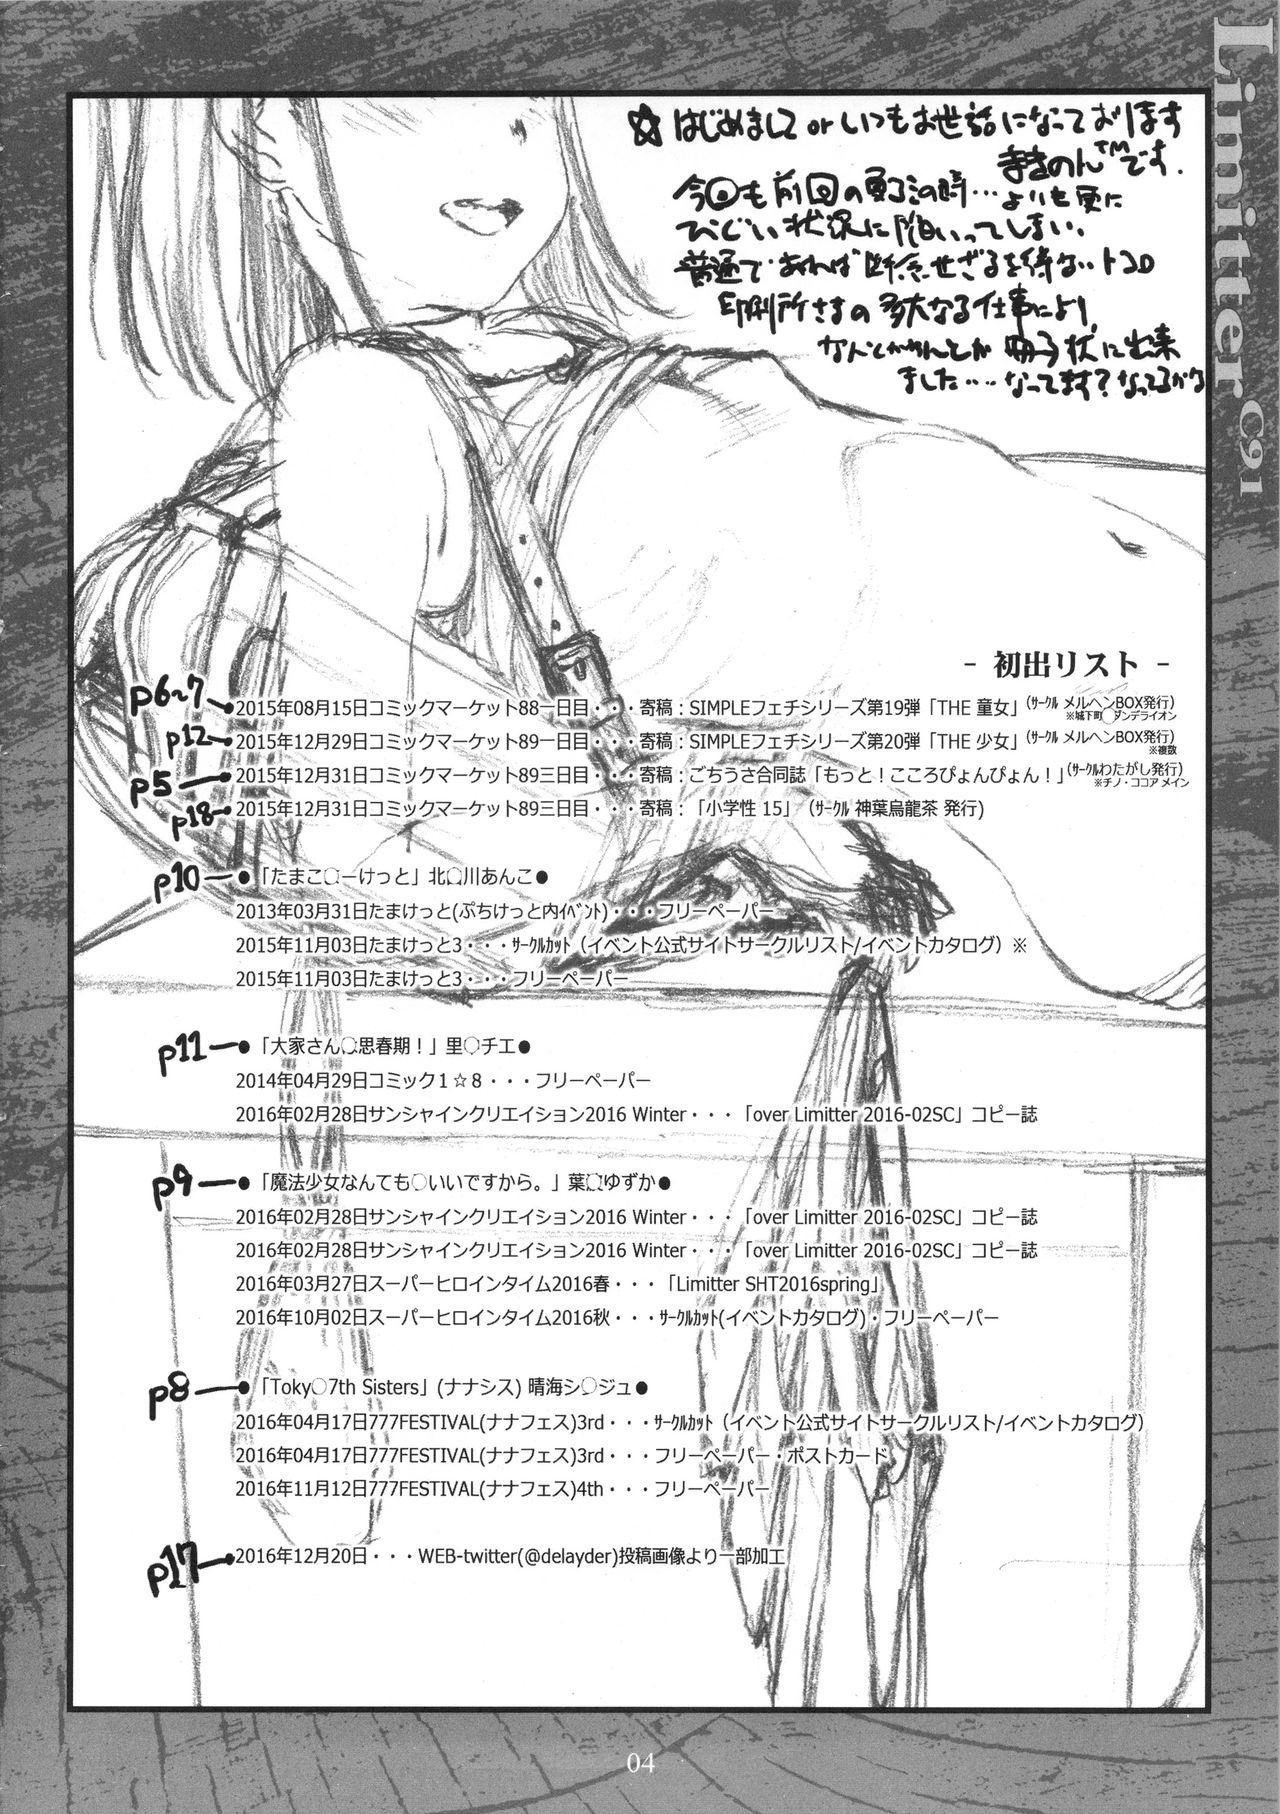 Limitter C91
☆はじめまして or いつもお世話になっております
まきのん™です.
今回も前回の
より更に
ひどい状況に陥いってしまい、
普通であれば断念せざるを得ないトコロ
印刷所さまの多大なる仕事により、
なんとかかんとか冊子状に出来
ました‥‥なってます？なってるかな
- 初出リスト -
p6~7 2015年08月15日コミックマーケット88一日目・・・寄稿：SIMPLEフェチシリーズ第19弾「THE 童女」(ｻｰｸﾙ メルヘンBOX発行)
※城下町◯ダンデライオン
p12 2015年12月29日コミックマーケット89一日目・・・寄稿：SIMPLEフェチシリーズ第20弾「THE 少女」(ｻｰｸﾙ メルヘンBOX発行)
※複数
p5 2015年12月31日コミックマーケット89三日目・・・寄稿：ごちうさ合同誌「もっと！こころぴょんぴょん！」(ｻｰｸﾙわたがし発行)
※チノ・ココア メイン
p18 2015年12月31日コミックマーケット89三日目・・・寄稿：「小学性 15」 (ｻｰｸﾙ 神葉烏龍茶 発行)
p10 ●「たまこ◯ーけっと」北◯川あんこ●
2013年03月31日たまけっと(ぷちけっと内ｲﾍﾞﾝﾄ)・・・フリーペーパー
2015年11月03日たまけっと3・・・ｻｰｸﾙｶｯﾄ（イベント公式サイトサークルリスト/イベントカタログ）※
2015年11月03日たまけっと3・・・フリーペーパー
p11 ●「大家さん◯思春期！」里◯チエ●
2014年04月29日コミック１☆８・・・フリーペーパー
2016年02月28日サンシャインクリエイション2016 Winter・・・「over Limitter 2016-02SC」コピー誌
p9 ●「魔法少女なんても◯いいですから。」葉◯ゆずか●
2016年02月28日サンシャインクリエイション2016 Winter・・・「over Limitter 2016-02SC」コピー誌
2016年02月28日サンシャインクリエイション2016 Winter・・・「over Limitter 2016-02SC」コピー誌
2016年03月27日スーパーヒロインタイム2016春・・・「Limitter SHT2016spring」
2016年10月02日スーパーヒロインタイム2016秋・・・ｻｰｸﾙｶｯﾄ(イベントカタログ)・フリーペーパー
p8 ●「Toky◯7th Sisters」(ナナシス) 晴海シ◯ジュ●
2016年04月17日777FESTIVAL(ナナフェス)3rd・・・ｻｰｸﾙｶｯﾄ（イベント公式サイトサークルリスト/イベントカタログ）
2016年04月17日777FESTIVAL(ナナフェス)3rd・・・フリーペーパー・ポストカード
2016年11月12日777FESTIVAL(ナナフェス)4th・・・フリーペーパー
p17 2016年12月20日・・・WEB-twitter(@delayder)投稿画像より一部加工
04